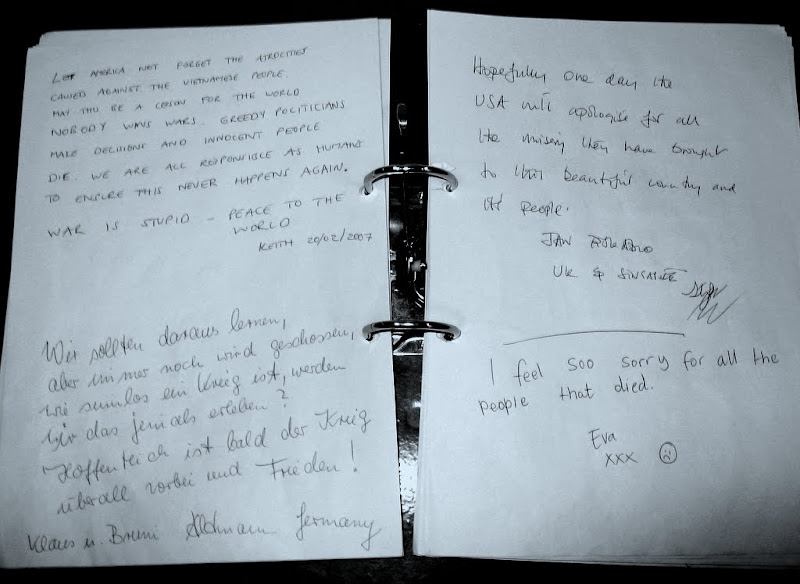 LET AMERICA NOT FORGET THE ATROCITIES
CAUSED AGAINST THE VIETNAMESE PEOPLE.
MAY THIS BE A LESSON FOR THE WORLD
NOBODY WINS WARS. GREEDY POLITICIANS
MAKE DECISIONS AND INNOCENT PEOPLE
DIE. WE ARE ALL RESPONSIBLE AS HUMANS
TO ENSURE THIS NEVER HAPPENS AGAIN.
WAR IS STUPID - PEACE TO THE
WORLD
KEITH 20/02/2007
Wir sollten daraus lernen,
aber immer noch wird geschossen,
wie sinnlos ein Krieg ist, werden
wir das jemals erleben?
Hoffentlich ist bald der Krieg
überall vorbei und Frieden!
Klaus u. Bruni Germany
Hopefully one day the
USA will apologise for all
the misery they have brought
to this beautiful country and
its people.
JAN
UK & SINGAPORE
I feel soo sorry for all the
people that died.
Eva
xxx